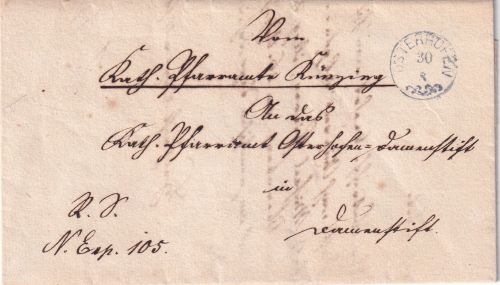 Vom
OSTERHOFEN
30
8
Kath. Pfarramte Künzing
An das
Kath. Pfarramt Osterhofen=Damenstift
in
R. S.
Damenstift.
N. Exp. 105.